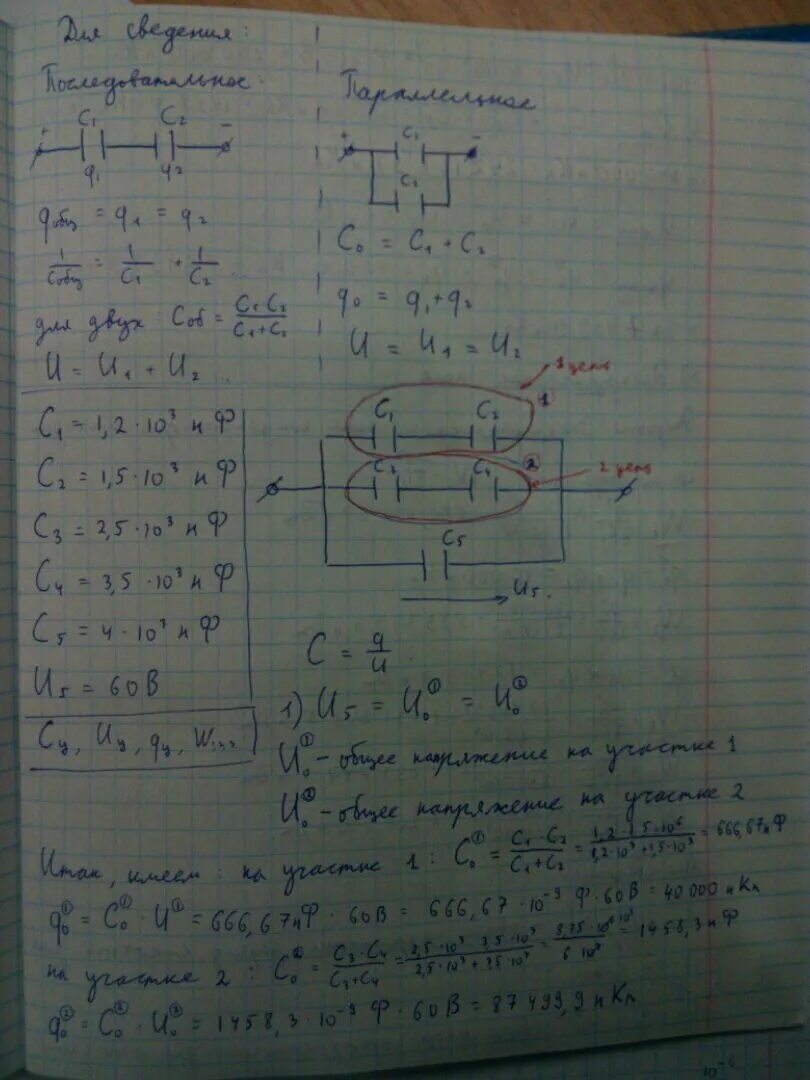 Для сведения:
Последовательное:
+ C₁ C₂ −
q₁ q₂
qобщ = q₁ = q₂
1/Cобщ = 1/C₁ + 1/C₂ ...
для двух: Cоб = C₁C₂/C₁+C₂
U = U₁ + U₂ ...
Параллельное
+ C₁ −
C₂
C₀ = C₁ + C₂
q₀ = q₁ + q₂
U = U₁ = U₂
C₁ = 1,2·10³ нФ
C₂ = 1,5·10³ нФ
C₃ = 2,5·10³ нФ
C₄ = 3,5·10³ нФ
C₅ = 4·10³ нФ
U₅ = 60В
Cц, Uц, qц, W
1 цепь
C₁ C₂ ①
② 2 цепь
C₃ C₄
C₅
U₅.
C = q/U
1) U₅ = U₀① = U₀②
U₀① - общее напряжение на участке 1
U₀② - общее напряжение на участке 2
Итак, имеем: на участке 1: C₀① = C₁·C₂/C₁+C₂ = 1,2·1,5·10⁶/1,2·10³+1,5·10³ = 666,67нФ
q₀① = C₀①·U① = 666,67нФ · 60В = 666,67·10⁻⁹ Ф·60В = 40 000 нКл
на участке 2: C₀② = C₃·C₄/C₃+C₄ = 2,5·10³·3,5·10³/2,5·10³+3,5·10³ = 8,75·10⁶ 10³/6 = 1458,3 нФ
q₀② = C₀②·U₀② = 1458,3·10⁻⁹ Ф·60В = 87 499,9 нКл
10⁻⁶